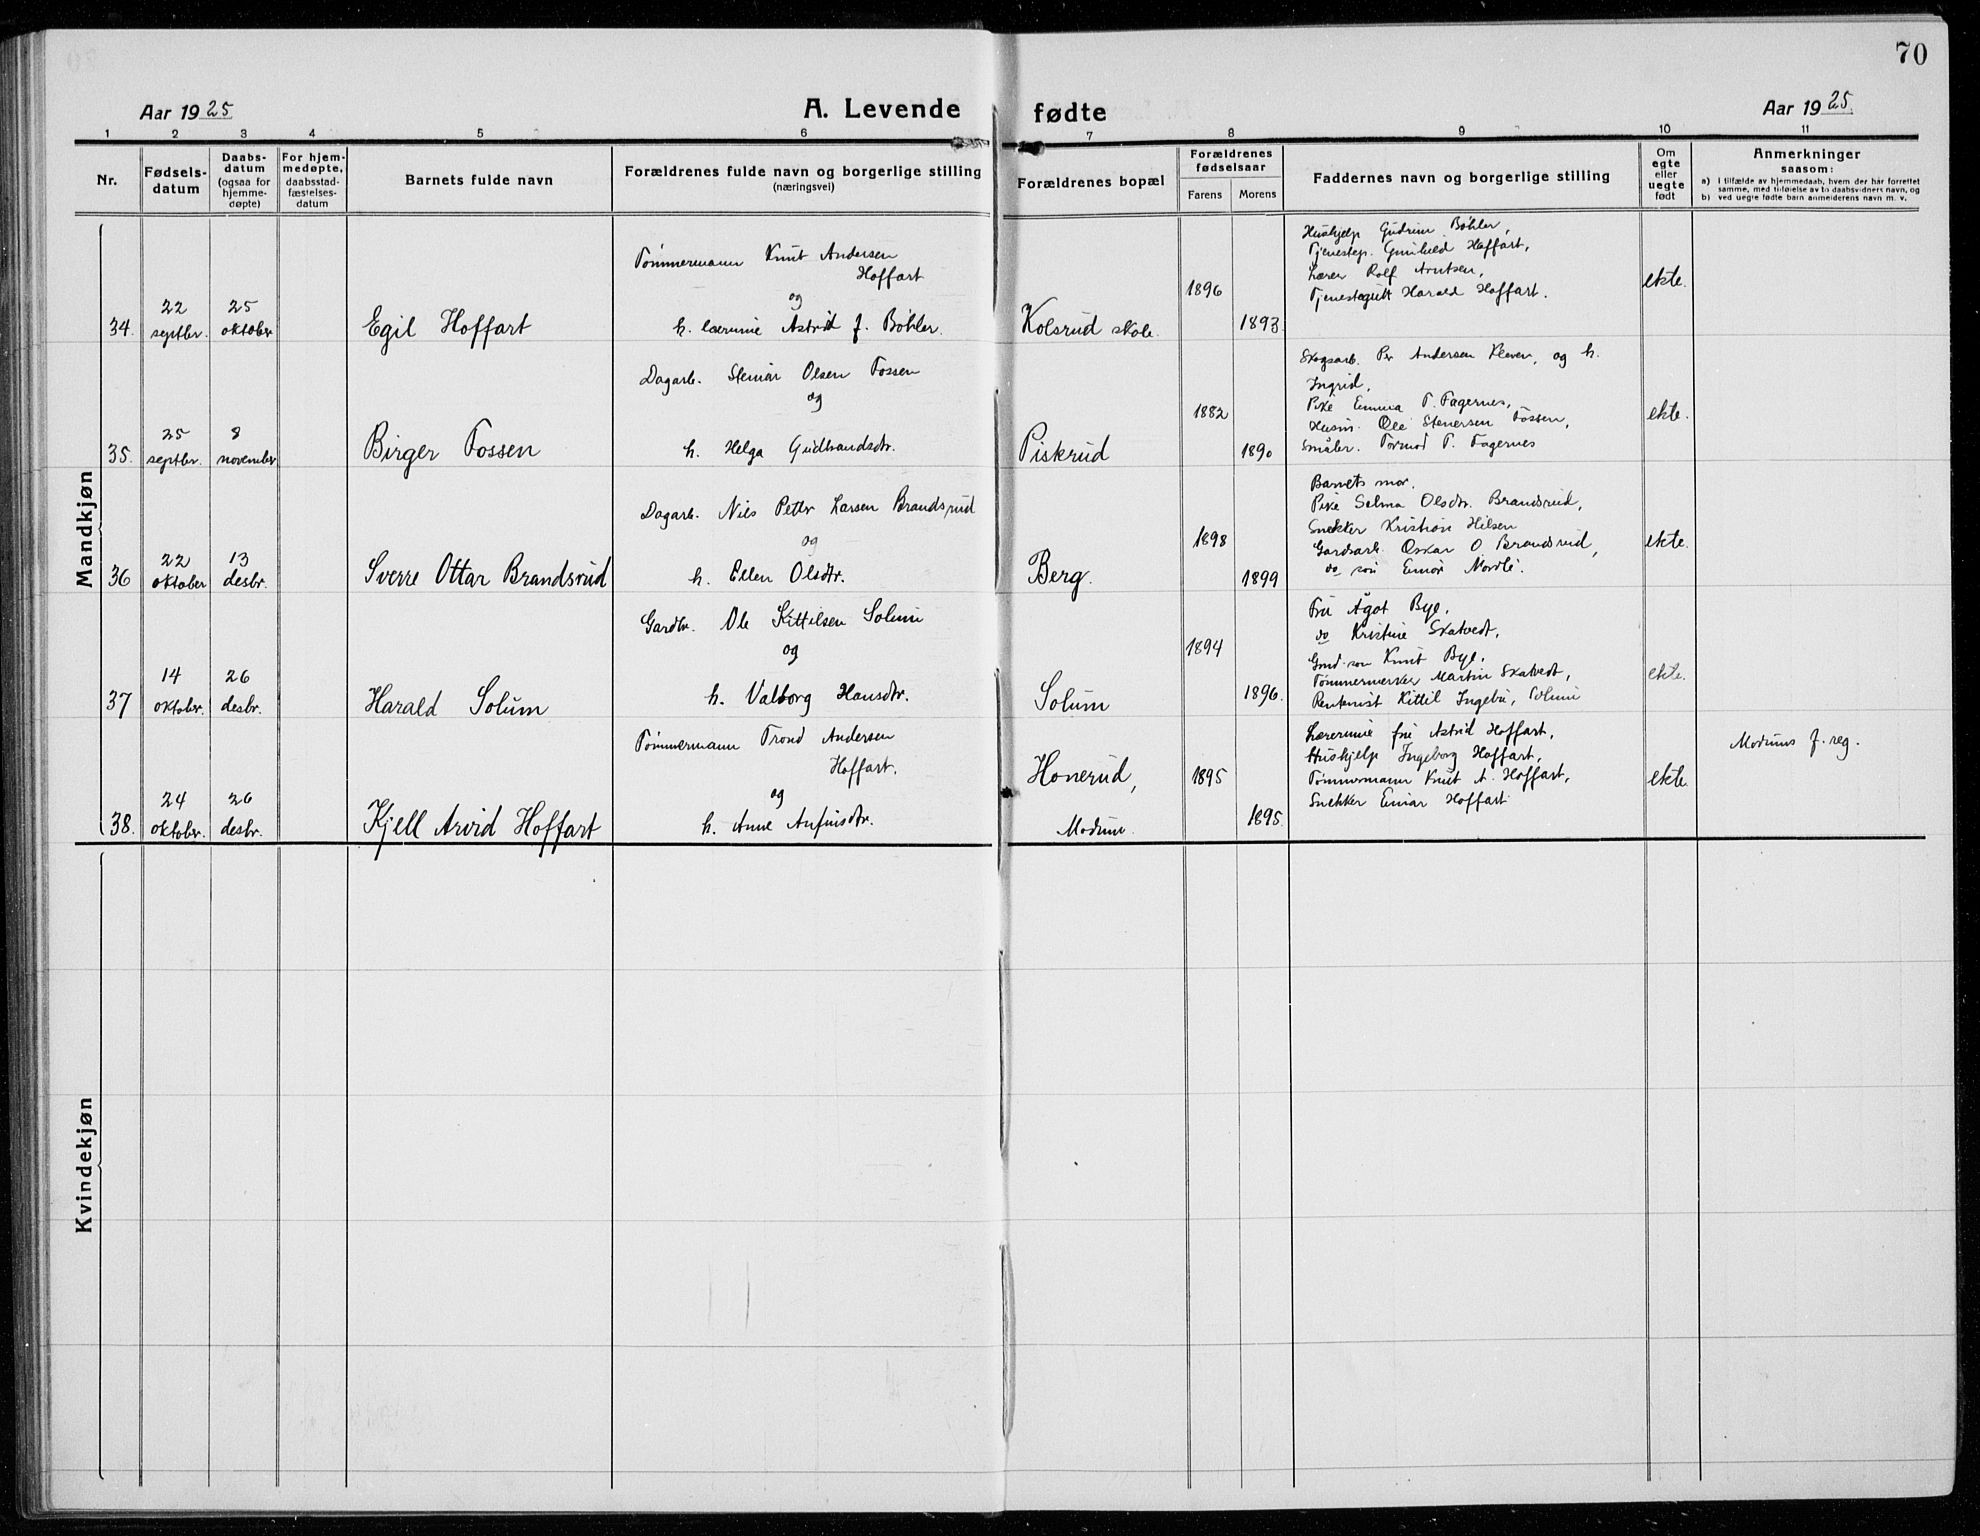 70
Aar 1925
A. Levende fødte
Aar 1925
1 2 3 4 5 6 7 8 9 10 11
Nr.
Fødsels-
datum
Daabs-
datum
(ogsaa for
hjemme-
døpte)
For hjem-
medøpte,
daabsstad-
fæstelses-
datum
Barnets fulde navn
Forældrenes fulde navn og borgerlige stilling
(næringsvei)
Forældrenes bopæl
Forældrenes
fødselsaar
Farens
Morens
Faddernes navn og borgerlige stilling
Om
egte
eller
uegte
født
Anmerkninger
saasom:
a) i tilfælde av hjemmedaab, hvem der har forrettet
samme, med tilføielse av to daabsvidners navn, og
b) ved uegte fødte barn anmelderens navn m. v.
Mandkjøn
34.
22
septbr.
25
oktober
Egil Hoffart
Tømmermann Knut Andersen
Hoffart
og
h. lærerinne Astrid f. Bøhler.
Kolsrud skole.
1896
1893.
Hushjelp Gudrun Bøhler,
Tjenestep. Gunhild Hoffart,
Lærer Rolf Arntsen,
Tjenestegutt Harald Hoffart.
ekte.
35.
25
septbr.
8
november
Birger Fossen
Dagarb. Steinar Olsen Fossen
og
h. Helga Gudbrandsdtr.
Piskerud
1882
1890
Skogsarb. Per Andersen Kleven, og h.
Ingrid,
Pike Emma T. Fagernes,
Husm. Ole Stenersen Fossen,
Småbr. Tormod T. Fagernes
ekte.
36
22
oktober
13
desbr.
Sverre Ottar Brandsrud
Dagarb. Nils Petter Larsen Brandsrud
og
h. Ellen Olsdtr.
Berg.
1898
1899
Barnets mor.
Pike Selma Olsdtr. Brandsrud,
Snekker Kristian Hilsen
Gardsarb. Oskar O. Brandsrud,
do søn Einar Nordli.
ekte.
37
14
oktober.
26
desbr.
Harald Solum
Gardbr. Ole Kittilsen Solum
og
h. Valborg Hansdtr.
Solum
1894
1896.
Fru Ågot Bye,
do Kristine Skatvedt,
Gmd. søn Knut Bye,
Tømmermerker Martin Skatvedt,
Rentenist Kittil Ingebr. Solum
ekte.
38.
24
oktober.
26
desbr.
Kjell Arvid Hoffart
Tømmermann Trond Andersen
Hoffart.
og
h. Anne Anfinsdtr.
Honerud,
Modum.
1895
1895.
Lærerinne fru Astrid Hoffart,
Hushjelp Ingeborg Hoffart,
Tømmermann Knut A. Hoffart,
Snekker Einar Hoffart
ekte.
Modums f. reg.
Kvindekjøn